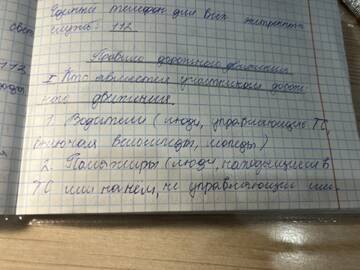 Единый телефон для всех экстренных
служб: 112
Правила дорожного движения
I. Кто является участником дорож
ного движения
1. Водители (люди, управляющие ТС,
включая велосипеды, мопеды)
2. Пассажиры (люди, находящиеся в
ТС или на нем, не управляющии им.